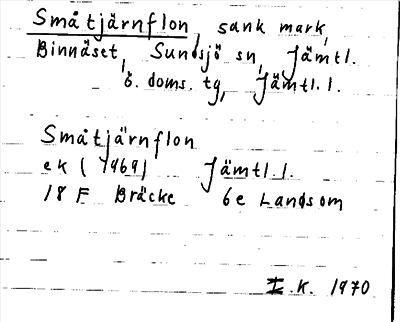 Småtjärnflon, sank mark,
Binnäset, Sundsjö sn, Jämtl.
ö. doms. tg, Jämtl. l.
Småtjärnflon
ek (1969) Jämtl. l.
18 F Bräcke 6e Landsom
I. K. 1970